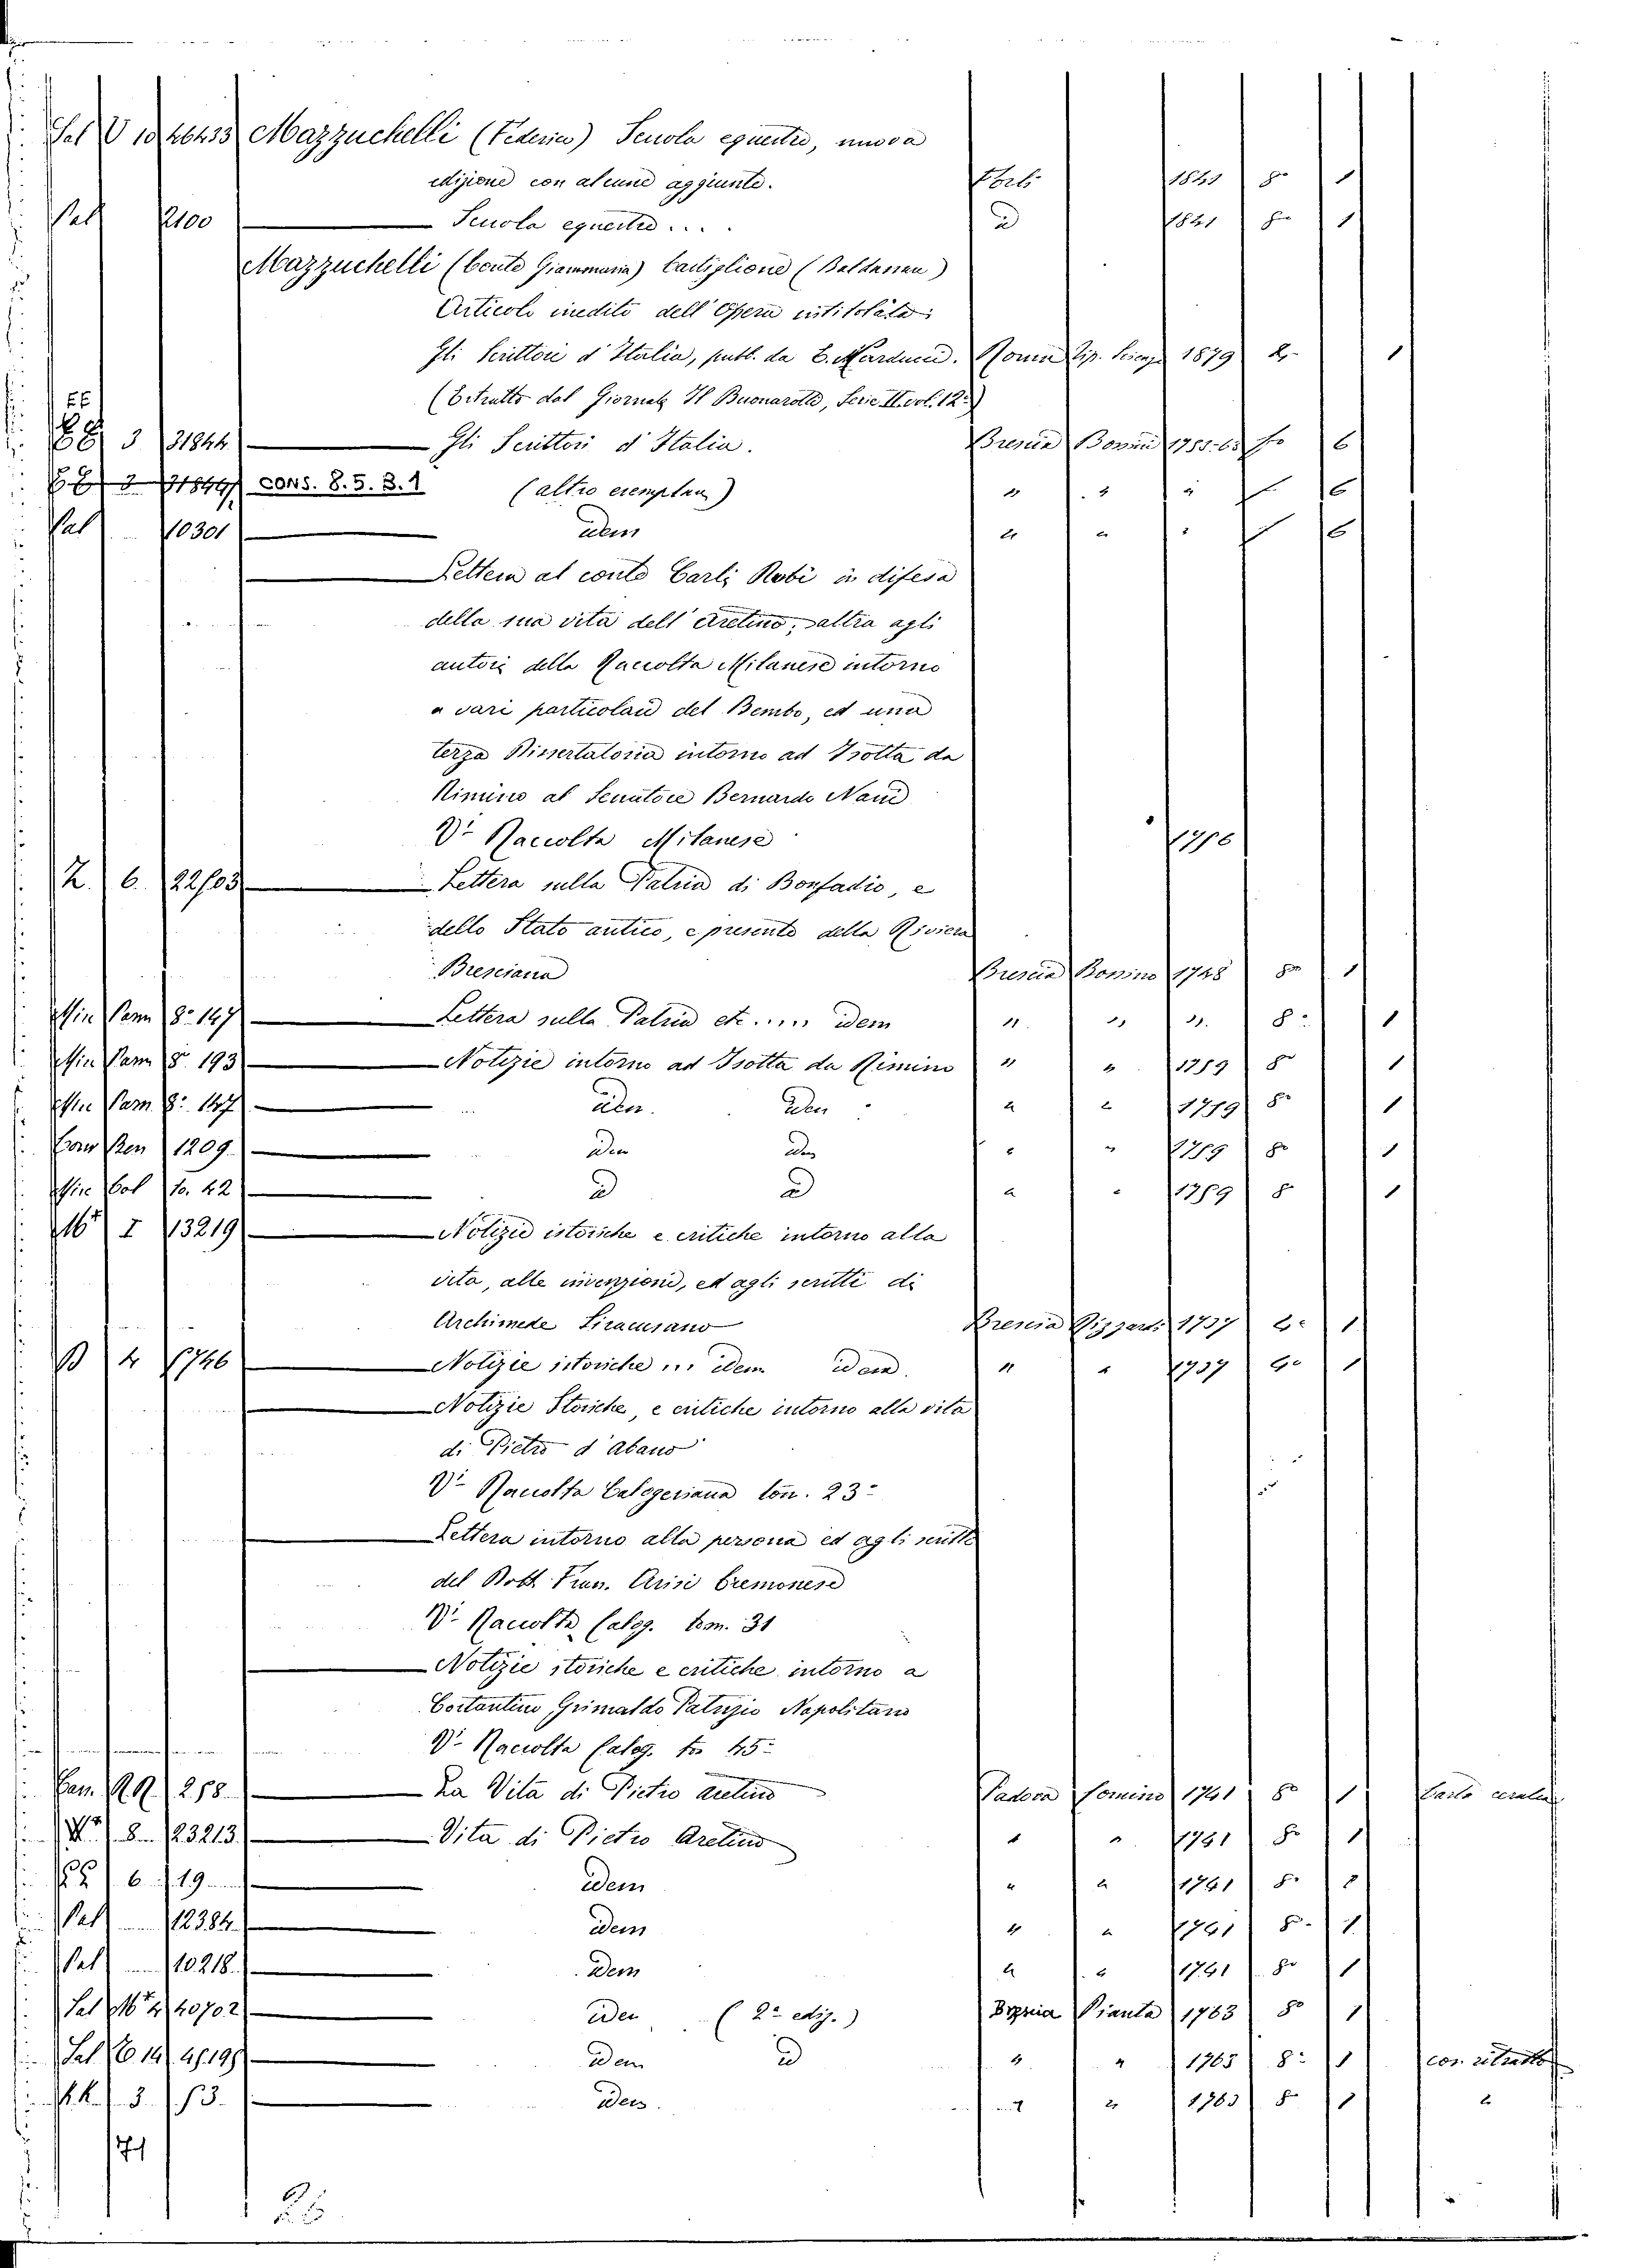 Sal V 10 46433 Mazzuchelli (Federico) Scuola equestre, nuova
edizione con alcune aggiunte. Forlì 1821 8º 1
Pal 12100 Scuola equestre .... id 1821 8º 1
Mazzuchelli (Conte Giammaria) Castiglione (Baldassar)
Articolo inedito dell'Opera intitolata:
Gli Scrittori d'Italia, pubb. da E. Narducci. Roma Tip. Scienze 1879 4º 1
(Estratto dal Giornale Il Buonarotti, Serie II. vol. 12º)
EE
3 31844 Gli Scrittori d'Italia. Brescia Bossini 1755-63 fº 6
3 31844 cons. 8.5.3.1 (altro esemplare) " " " fº 6
Pal 10301 idem " " " fº 6
Lettera al conte Carli Rubi in difesa
della sua vita dell'Aretino, altra agli
autori della Raccolta Milanese intorno
a varî particolari del Bembo, ed una
terza Dissertatoria intorno ad Isotta da
Rimino al Senatore Bernardo Nani
Vi Raccolta Milanese 1756
Z. 6. 22503 Lettera sulla Patria di Bonfadio, e
dello Stato antico, e presente della Riviera
Bresciana Brescia Bossino 1748 8º 1
Min Pam 8º 147 Lettera sulla Patria etc..... idem " " " 8º 1
Min Pam 8º 193 Notizie intorno ad Isotta da Rimino " " 1759 8º 1
Min Pam 8º 147 idem idem " " 1759 8º 1
1209 idem idem " " 1759 8º 1
Min Col 10. 42 id id " " 1759 8º 1
Mº I 13219 Notizie istoriche e critiche intorno alla
vita, alle invenzioni, ed agli scritti di
Archimede Siracusano Brescia Rizzardi 1737 4º 1
B 4 1746 Notizie istoriche ... idem idem. " " 1737 4º 1
Notizie Storiche, e critiche intorno alla vita
di Pietro d'Abano
Vi Raccolta Calogeriana tom. 23º
Lettera intorno alla persona ed agli scritti
del Dott. Fran. Arisi Cremonese
Vi Raccolta Calog. tom. 31
Notizie storiche e critiche intorno a
Costantino Grimaldo Patrizio Napolitano
Vi Raccolta Calog. to 45º
RR 258 La Vita di Pietro Aretino Padova Comino 1741 8º 1
8 23213 Vita di Pietro Aretino " " 1741 8º 1
6 19 idem " " 1741 8º 1
Pal 12384 idem " " 1741 8º 1
Pal 10218 idem " " 1741 8º 1
Sal Mº 4 40702 idem (2ª ediz.) Brescia Pianta 1763 8º 1
Sal 14 45195 idem id " " 1763 8º 1 con ritratto
K.k. 3 53. idem " " 1763 8º 1 "